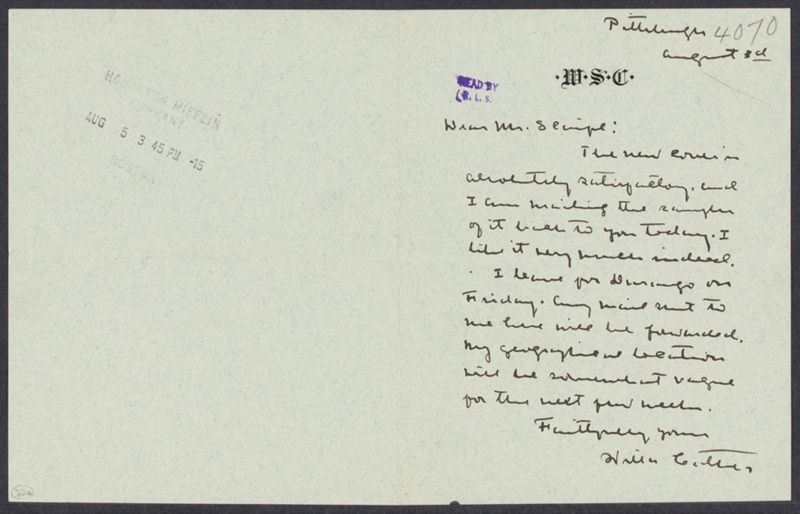 Pittsburgh 4070
August 3rd
·W·S·C·
READ BY
R. L. S.
HOUGHTON MIFFLIN
COMPANY
AUG 5 3 45 PM -15
BOSTON
Dear Mr. Scaife:
The new cover is
absolutely satisfactory, and
I am mailing the sample
of it back to you today. I
like it very much indeed.
I leave for Durango on
Friday. Any mail sent to
me here will be forwarded.
My geographical location
will be somewhat vague
for the next few weeks.
Faithfully yours
Willa Cather